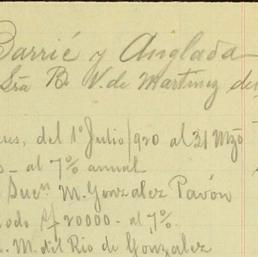 Barrié y Anglada
Sra B. V. de Martinez de
del 1º Julio/920 al 31 Mzo
al 7% anual
Sucn M. Gonzalez Pavón
20000 - al 7%
M. del Rio de Gonzalez